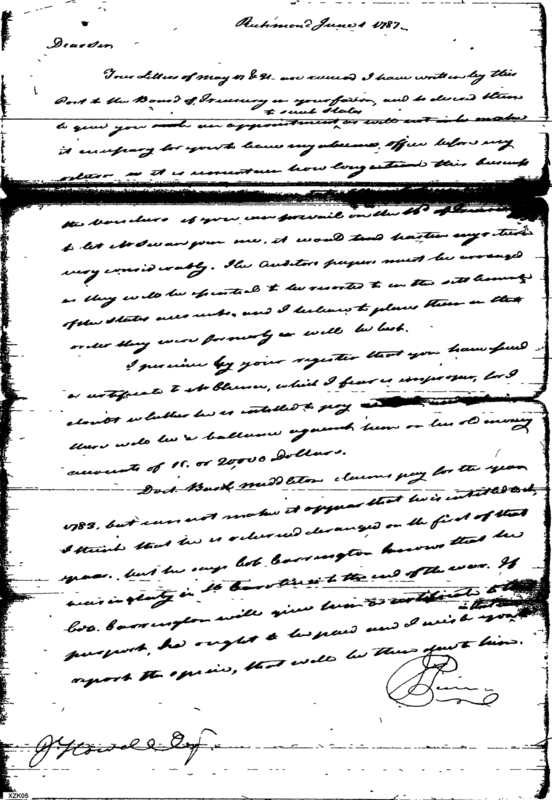 Richmond June 1 1787.
Dear Sir
Your Letters of May 17 & 21. are received I have written by this
Post to the Board of Treasury in your favor, and to desire them
to such States
to give you an appointment, as will not make
it necessary for you to leave my office before my
return as it is uncertain how long this business
the vouchers if you can prevail on the Bd. of Treasury
to let Mr Swan join me, it would tend hasten my return
very considerably. The Auditors papers must be arranged
as they will be essential to be resorted to in the settlement
of the States accounts, and I believe to place them in the
order they were formerly in will be best.
I perceive by your register that you have issued
a certificate to Mr Blume, which I fear is improper, for I
doubt whether he is entitled to pay
there will be a ballance against him on his old money
accounts of 15. or 20,000 Dollars.
Doct. Middleton claims pay for the year
1783. but can not make it appear that he is entitled to it,
I think that he is returned deranged on the first of that
year. but he says Col. Carrington knows that he
was in duty in So Carolina to the end of the war. If
Col. Carrington will give him a certificate to that
purport, he ought to be paid and I wish you
report the specie, that will be then due to him.
J Howell Esq.
XZK05